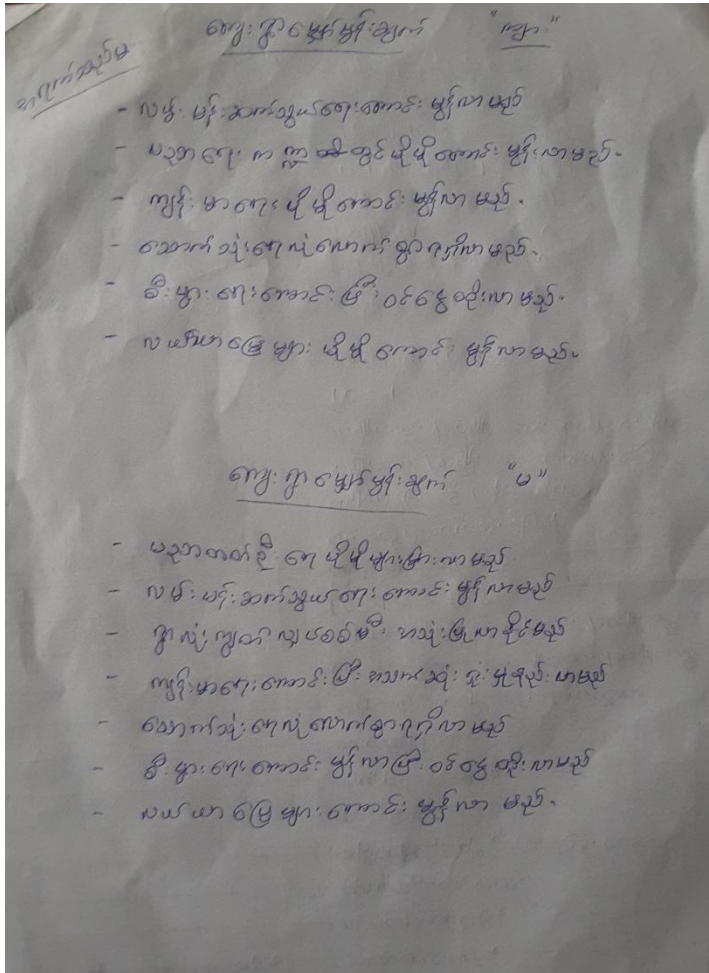 ကျေးရွာမျှော်မှန်းချက် "ကျား"
- လမ်းပန်းဆက်သွယ်ရေးကောင်းမွန်လာမည်
- ပညာရေးကဏ္ဍတွင်ပိုမိုကောင်းမွန်လာမည်။
- ကျန်းမာရေးပိုမိုကောင်းမွန်လာမည်။
- သောက်သုံးရေလုံလောက်စွာရရှိလာမည်။
- စီးပွားရေးကောင်းပြီးဝင်ငွေတိုးလာမည်။
- လယ်ယာမြေများပိုမိုကောင်းမွန်လာမည်။
ကျေးရွာမျှော်မှန်းချက် "မ"
- ပညာတတ်ဦးရေပိုမိုများပြားလာမည်
- လမ်းပန်းဆက်သွယ်ရေးကောင်းမွန်လာမည်
- ရွာလုံးကျွတ်လျှပ်စစ်မီးအသုံးပြုလာနိုင်မည်
- ကျန်းမာရေးကောင်းပြီးအသက်ဆုံးရှုံးမှုနည်းလာမည်
- သောက်သုံးရေလုံလောက်စွာရရှိလာမည်
- စီးပွားရေးကောင်းမွန်လာပြီးဝင်ငွေတိုးလာမည်
- လယ်ယာမြေများကောင်းမွန်လာမည်။